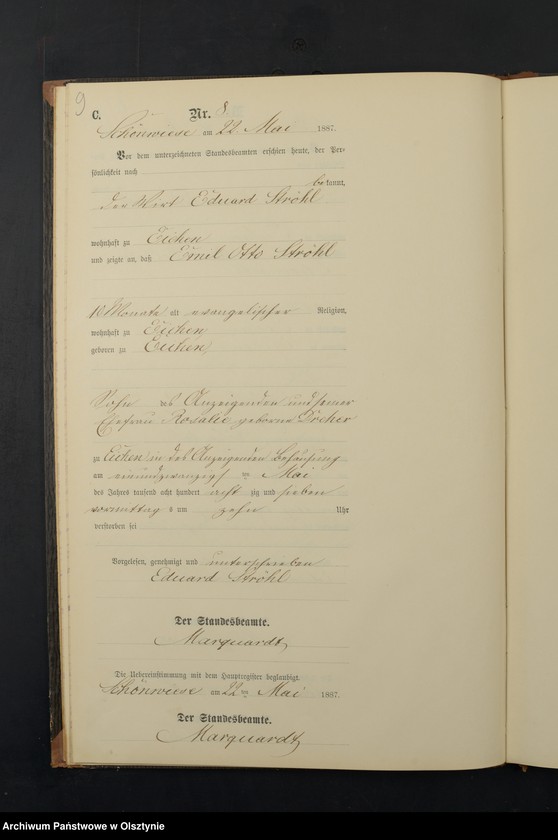 9
C.
Nr. 8
Schönwiese am 22 Mai 1887.
Vor dem unterzeichneten Standesbeamten erschien heute, der Per-
sönlichkeit nach
bekannt,
der Wirt Eduard Ströhl
wohnhaft zu Eichen
und zeigte an, daß Emil Otto Ströhl
10 Monate alt evangelischer Religion,
wohnhaft zu Eichen
geboren zu Eichen
Sohn des Anzeigenden und seiner
Ehefrau Rosalie geborne Dreher
zu Eichen in des Anzeigenden Behausung
am einundzwanzigst ten Mai
des Jahres tausend acht hundert acht zig und sieben
vormittag s um zehn Uhr
verstorben sei
Vorgelesen, genehmigt und unterschrieben
Eduard Ströhl
Der Standesbeamte.
Marquardt
Die Uebereinstimmung mit dem Hauptregister beglaubigt.
Schönwiese am 22 ten Mai 1887.
Der Standesbeamte.
Marquardt
Archiwum Państwowe w Olsztynie